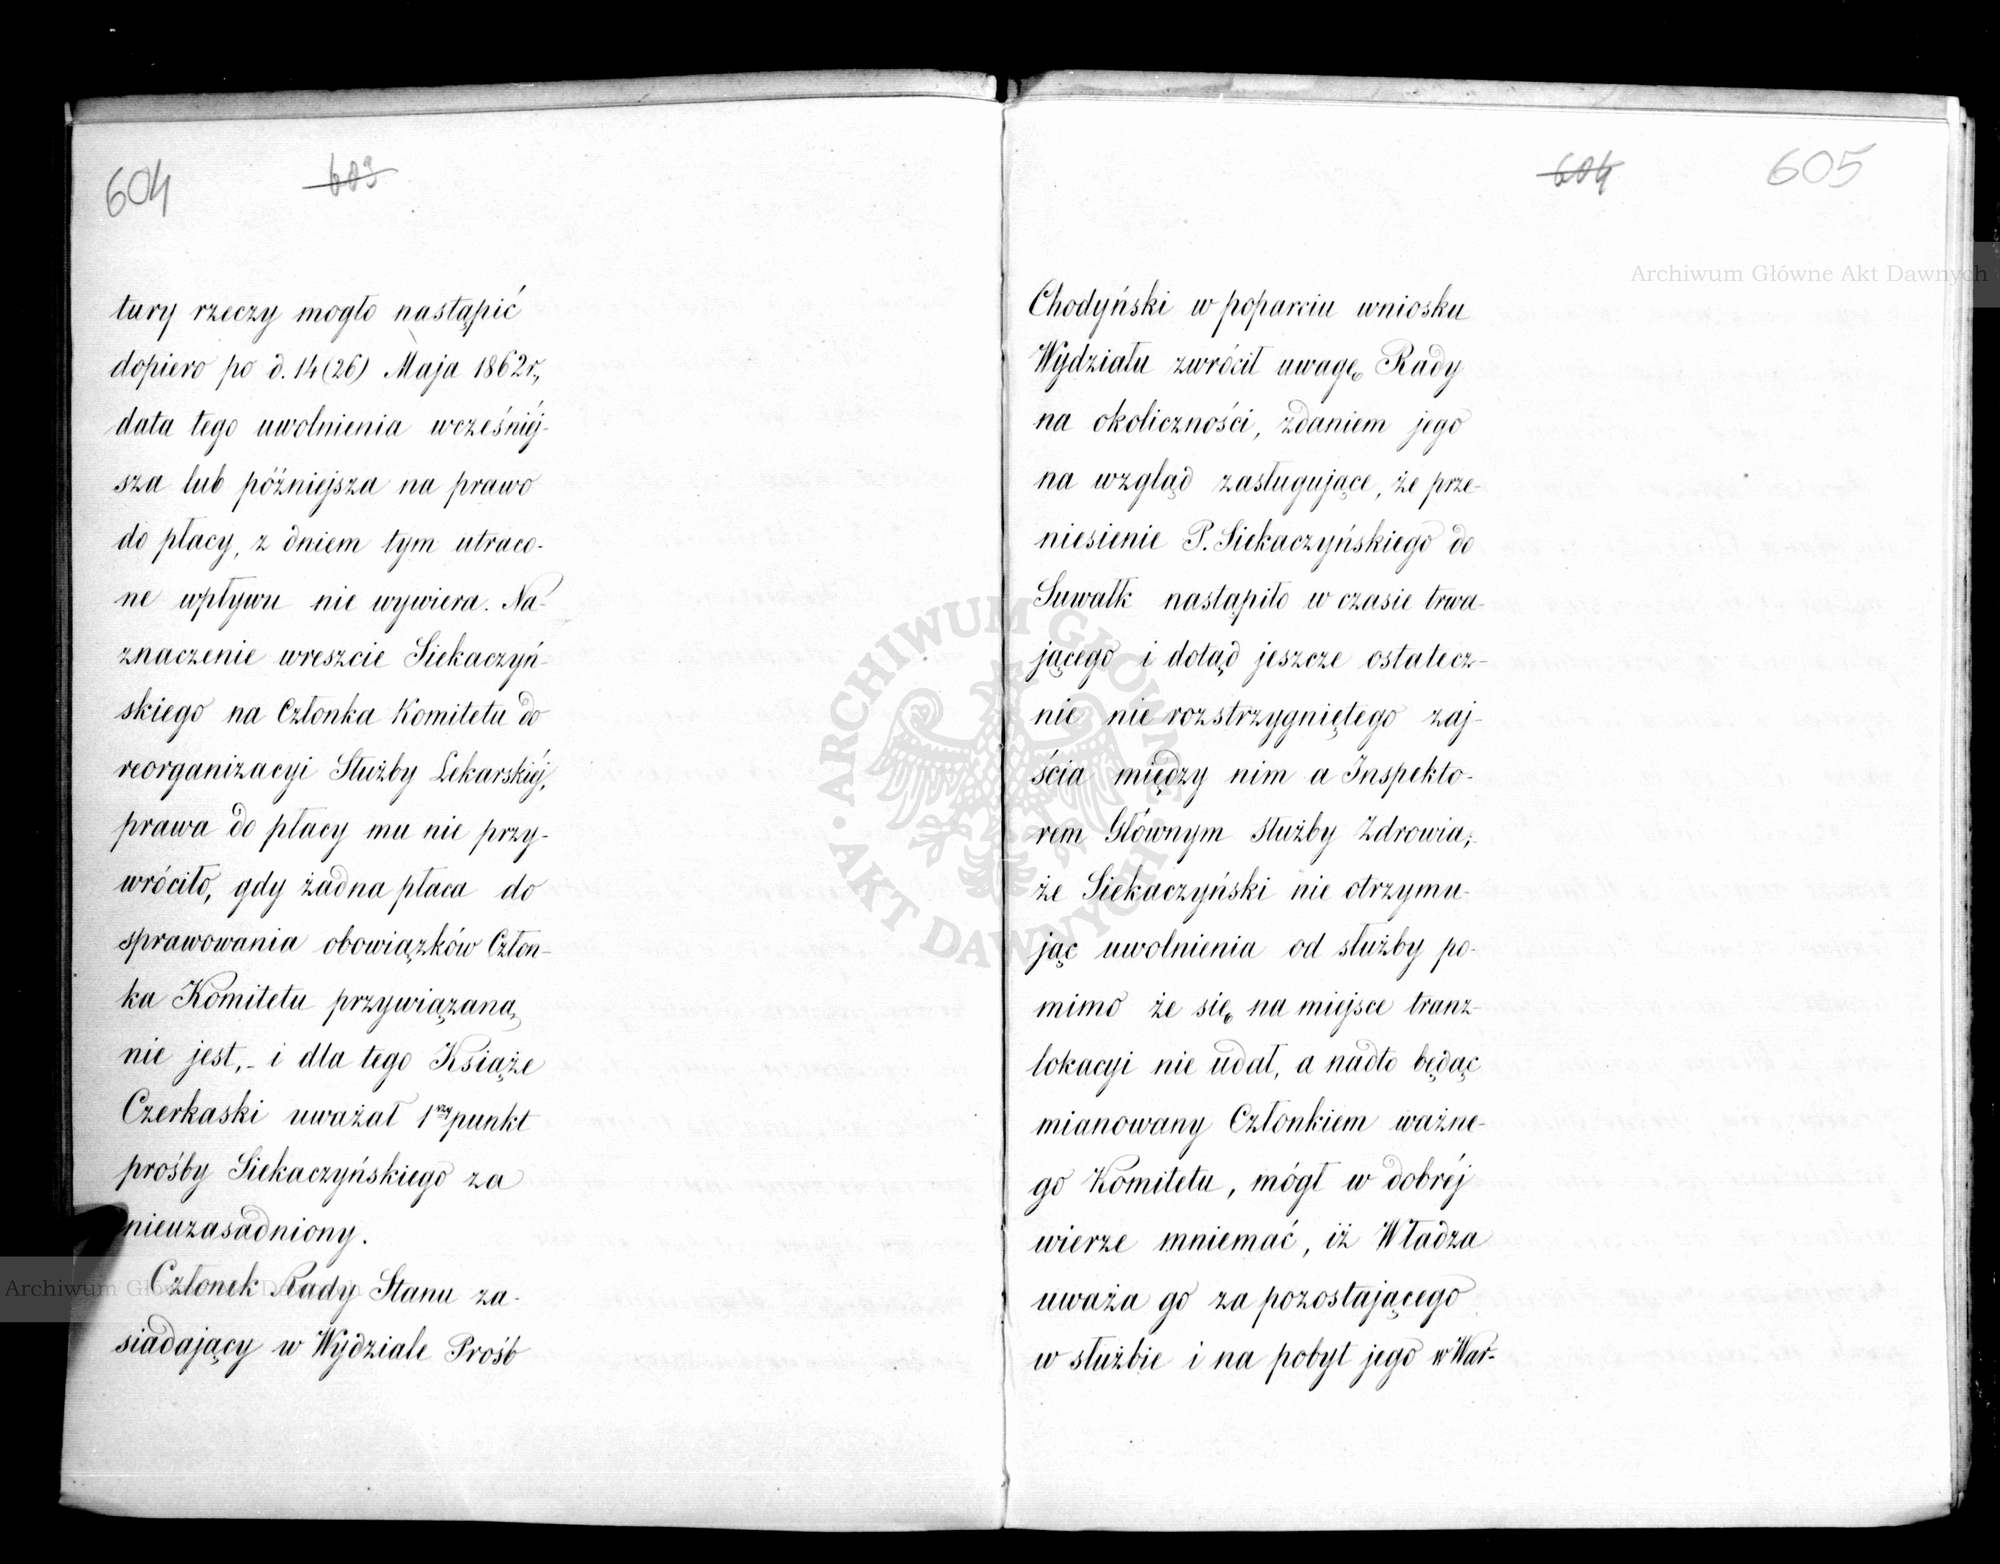 604
603
tury rzeczy mogło nastąpić
dopiero po d. 14 (26) Maja 1862 r.,
data tego uwolnienia wcześniéj-
sza lub późniejsza na prawo
do płacy, z dniem tym utraco-
ne wpływu nie wywiera. Na-
znaczenie wreszcie Siekaczyń-
skiego na Członka Komitetu do
reorganizacyi Służby Lekarskiéj,
prawa do płacy mu nie przy-
wróciło, gdy żadna płaca do
sprawowania obowiązków Człon-
ka Komitetu przywiązaną
nie jest, - i dla tego Książe
Czerkaski uważał 1wszy punkt
prośby Siekaczyńskiego za
nieuzasadniony.
Członek Rady Stanu za-
siadający w Wydziale Prośb
604
605
Chodyński w poparciu wniosku
Wydziału zwrócił uwagę Rady
na okoliczności, zdaniem jego
na wzgląd zasługujące, że prze-
niesienie P. Siekaczyńskiego do
Suwałk nastąpiło w czasie trwa-
jącego i dotąd jeszcze ostatecz-
nie nie rozstrzygniętego zaj-
ścia między nim a Inspekto-
rem Głównym Służby Zdrowia;
że Siekaczyński nie otrzymu-
jąc uwolnienia od służby po-
mimo że się na miejsce tranz-
lokacyi nie udał, a nadto będąc
mianowany Członkiem ważne-
go Komitetu, mógł w dobréj
wierze mniemać, iż Władza
uważa go za pozostającego
w służbie i na pobyt jego w War-
Archiwum Główne Akt Dawnych
Archiwum Główne Akt Dawnych
ARCHIWUM GŁÓWNE · AKT DAWNYCH ·